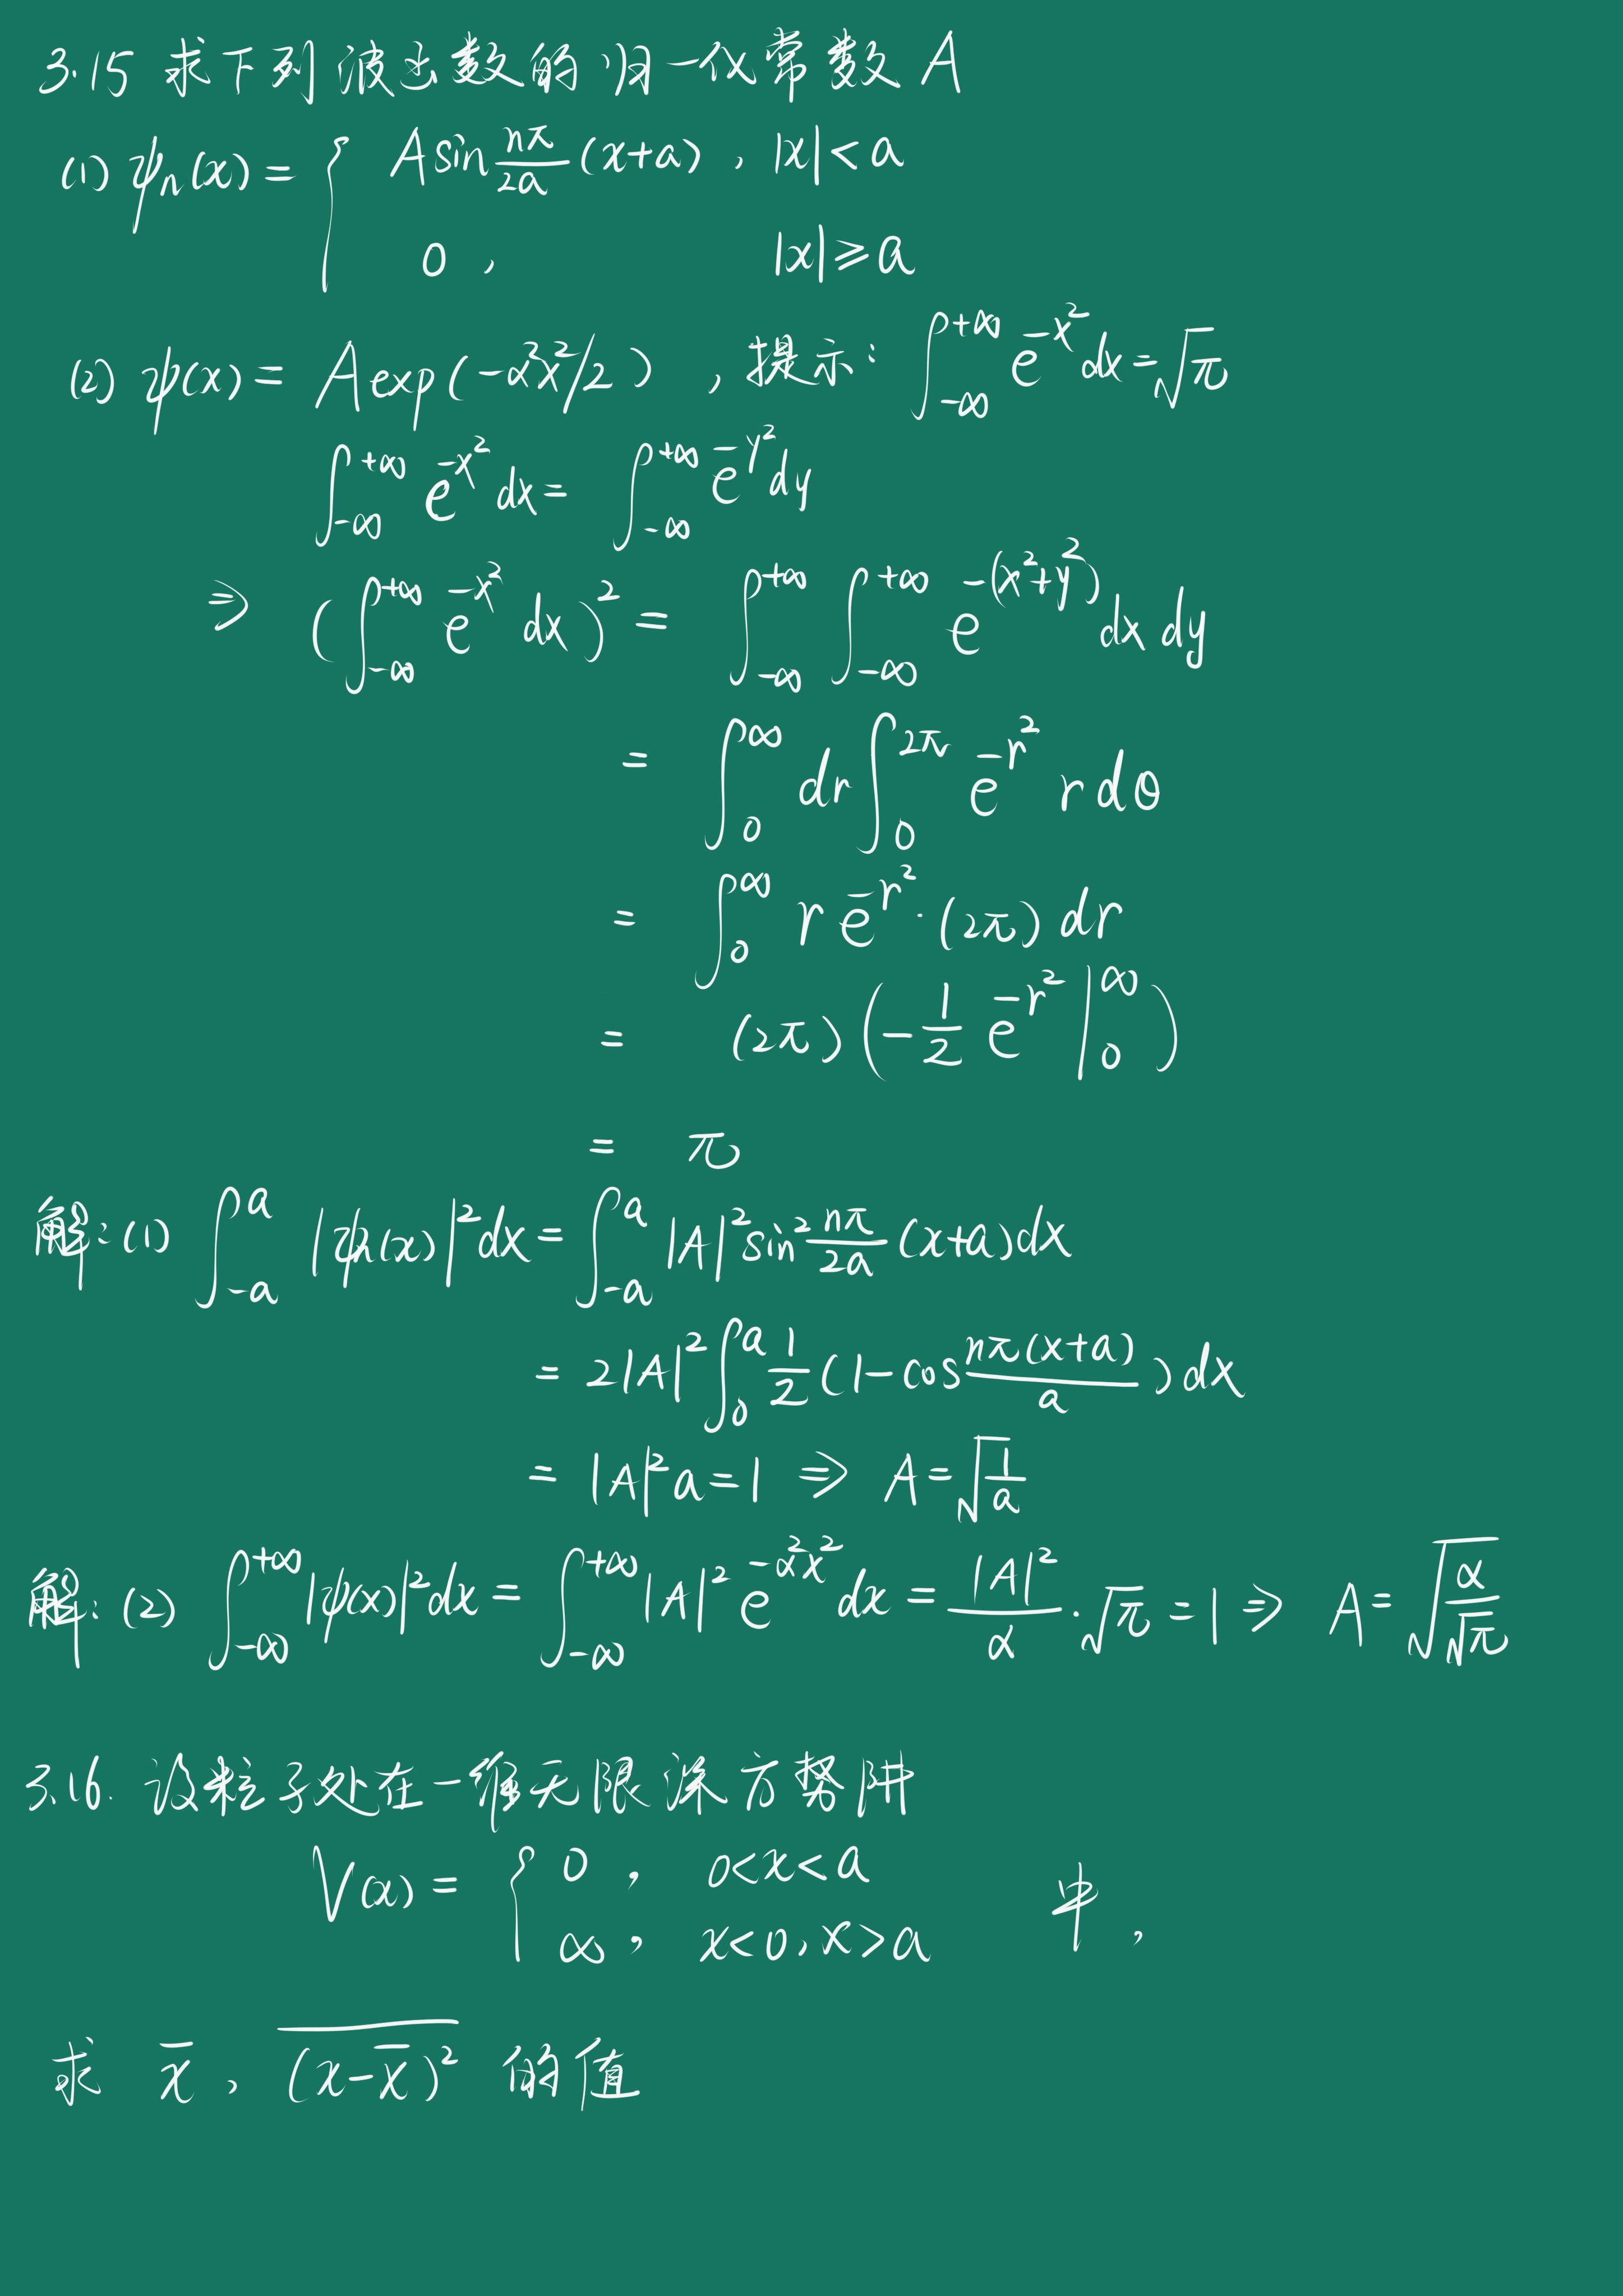 3.15 求下列波函数的归一化常数 A
(1) ψₙ(x) = { A sin nπ/2a (x+a) , |x| < a
0 , |x| ≥ a
(2) ψ(x) = A exp(-α²x²/2) , 提示: ∫_{-∞}^{+∞} e^{-x²} dx = √π
∫_{-∞}^{+∞} e^{-x²} dx = ∫_{-∞}^{+∞} e^{-y²} dy
⇒ (∫_{-∞}^{+∞} e^{-x²} dx)² = ∫_{-∞}^{+∞} ∫_{-∞}^{+∞} e^{-(x²+y²)} dx dy
= ∫_0^∞ dr ∫_0^{2π} e^{-r²} r dθ
= ∫_0^∞ r e^{-r²} · (2π) dr
= (2π) (-1/2 e^{-r²} |_0^∞)
= π
解: (1) ∫_{-a}^{a} |ψₙ(x)|² dx = ∫_{-a}^{a} |A|² sin² nπ/2a (x+a) dx
= 2|A|² ∫_0^a 1/2 (1 - cos nπ(x+a)/a) dx
= |A|² a = 1 ⇒ A = √(1/a)
解: (2) ∫_{-∞}^{+∞} |ψ(x)|² dx = ∫_{-∞}^{+∞} |A|² e^{-α²x²} dx = |A|²/α · √π = 1 ⇒ A = √(α/√π)
3.16. 设粒子处在一维无限深方势阱
V(x) = { 0 , 0<x<a
∞ , x<0, x>a 中 ,
求 x̄ , \overline{(x-x̄)²} 的值